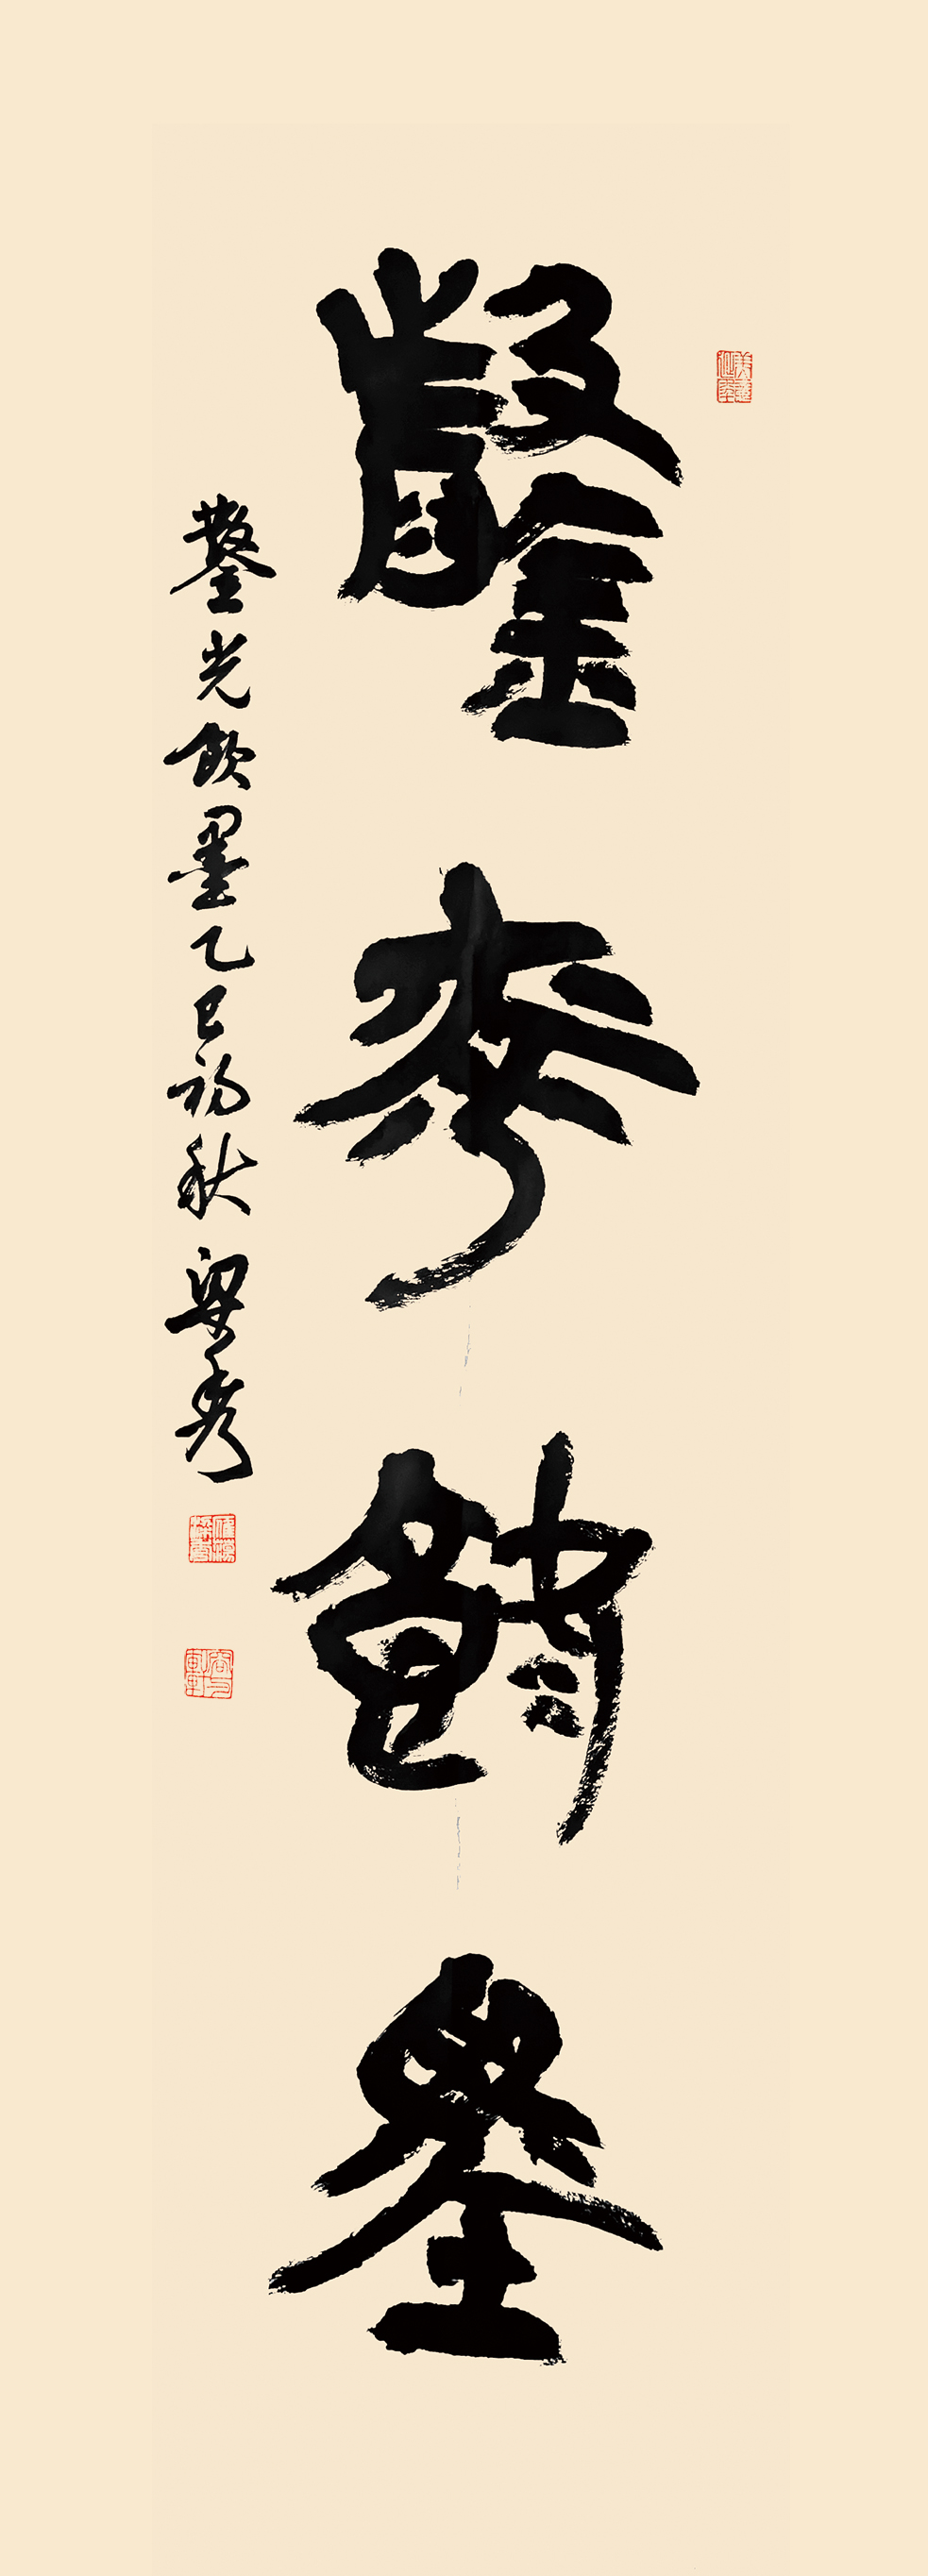 鑿光飲墨
鑿光飲墨乙巳初秋梁秀